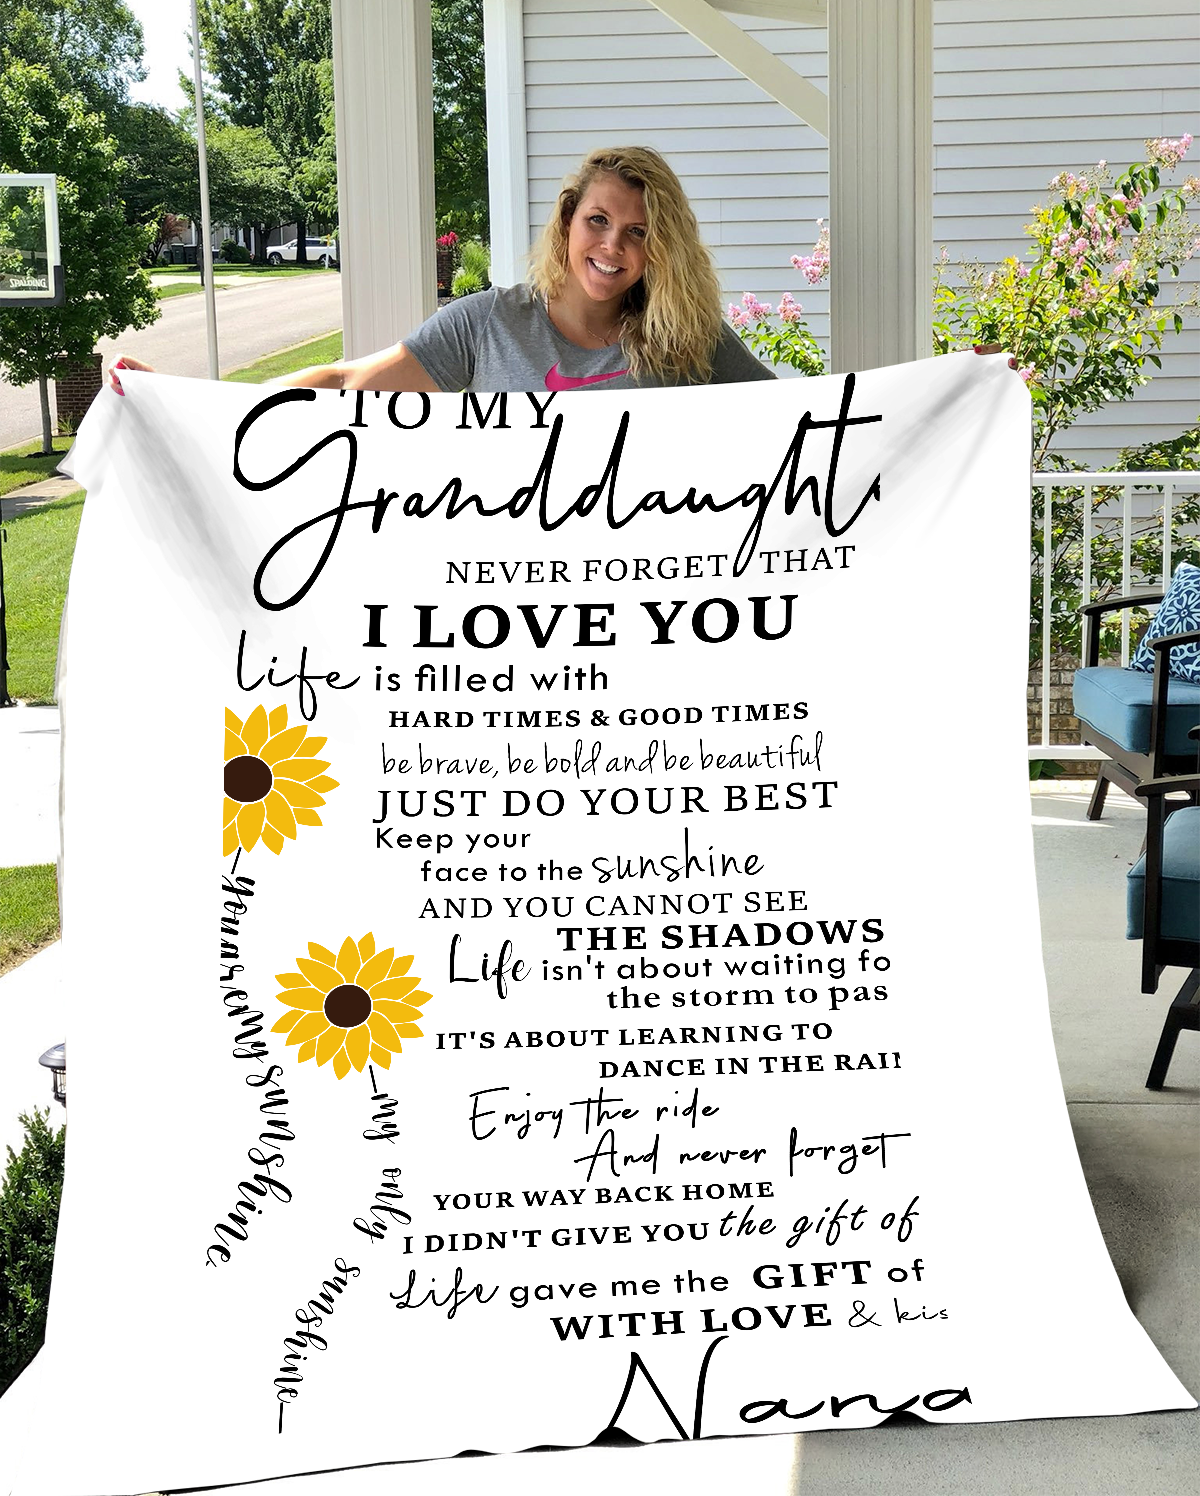 TO MY
Granddaught
NEVER FORGET THAT
I LOVE YOU
Life is filled with
HARD TIMES & GOOD TIMES
be brave, be bold and be beautiful
JUST DO YOUR BEST
Keep your
face to the sunshine
AND YOU CANNOT SEE
THE SHADOWS
Life isn't about waiting fo
the storm to pas
IT'S ABOUT LEARNING TO
DANCE IN THE RAIN
Enjoy the ride
And never forget
YOUR WAY BACK HOME
I DIDN'T GIVE YOU the gift of
Life gave me the GIFT of
WITH LOVE & kis
Nana
you are my sunshine
my only sunshine
SPALDING